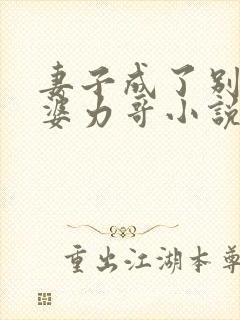 妻子成了别
婆力哥小說
重出江湖本尊